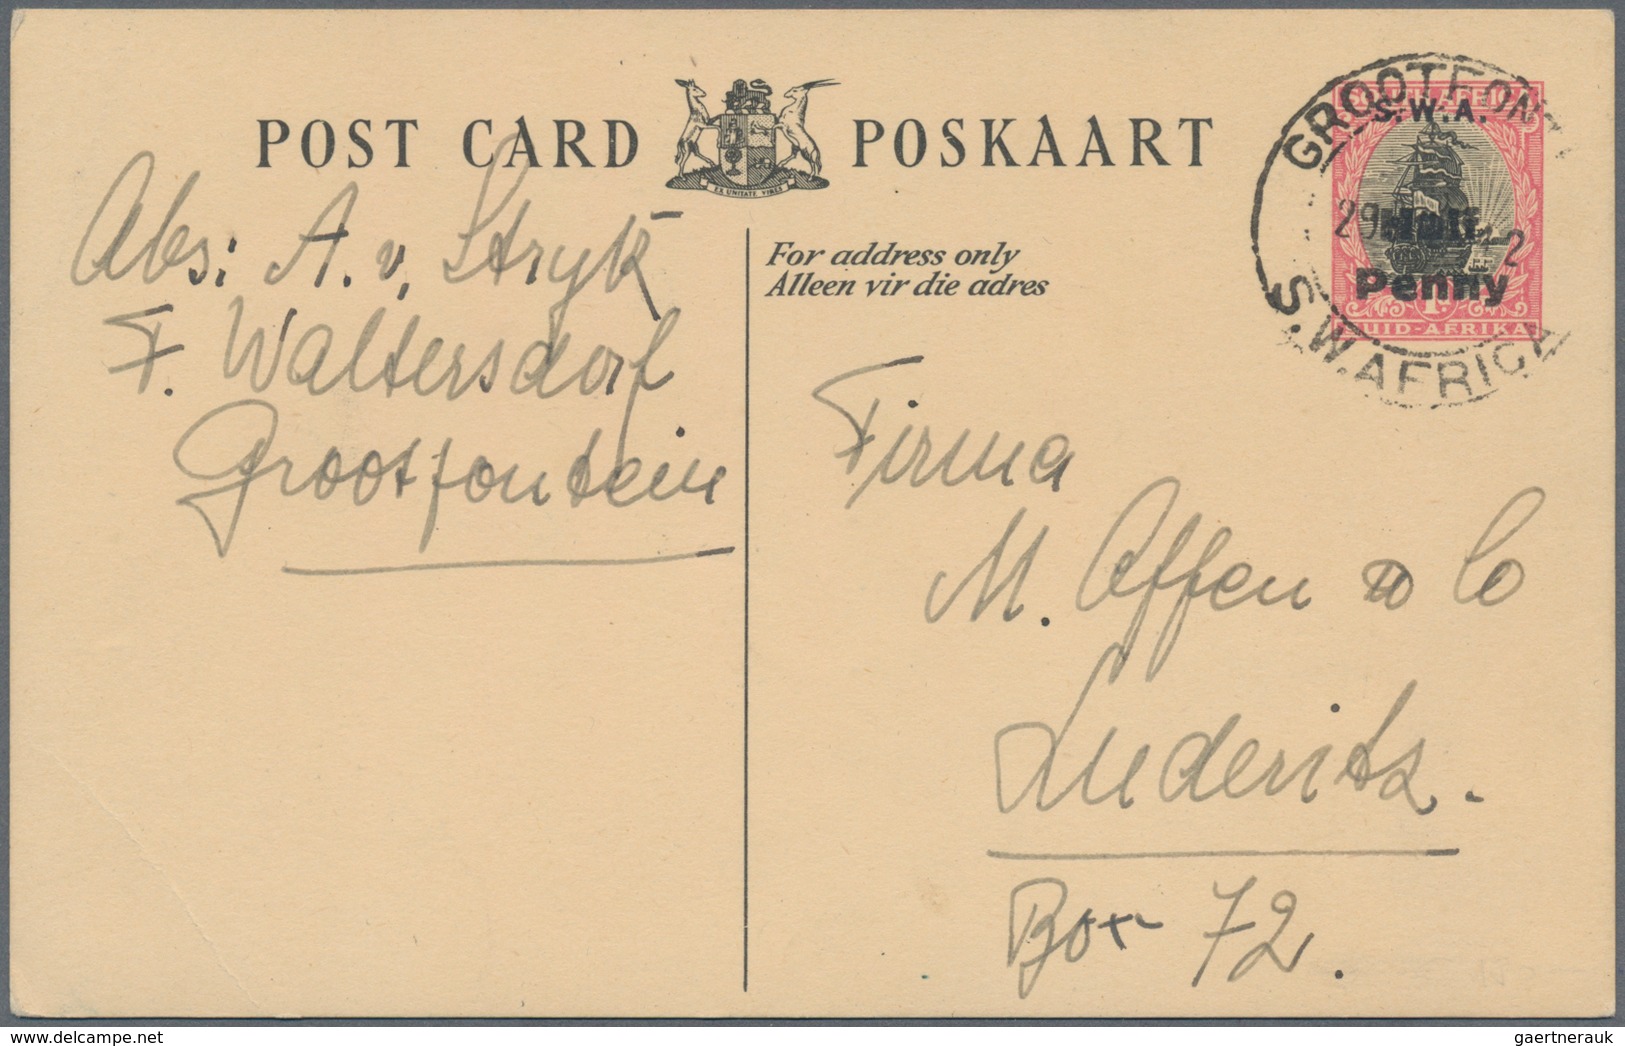 POST CARD POSKAART
EX UNITATE VIRES
For address only
Alleen vir die adres
S.W.A.
Half
Penny
1D.
SUID-AFRIKA
GROOTFONT
29
S.W.AFRICA
Abs: A. v. Stryk
F. Waltersdorf
Grootfontein
Firma
M. Offen & Co
Luderitz.
Box 72.
www.delcampe.net
gaertnerauk